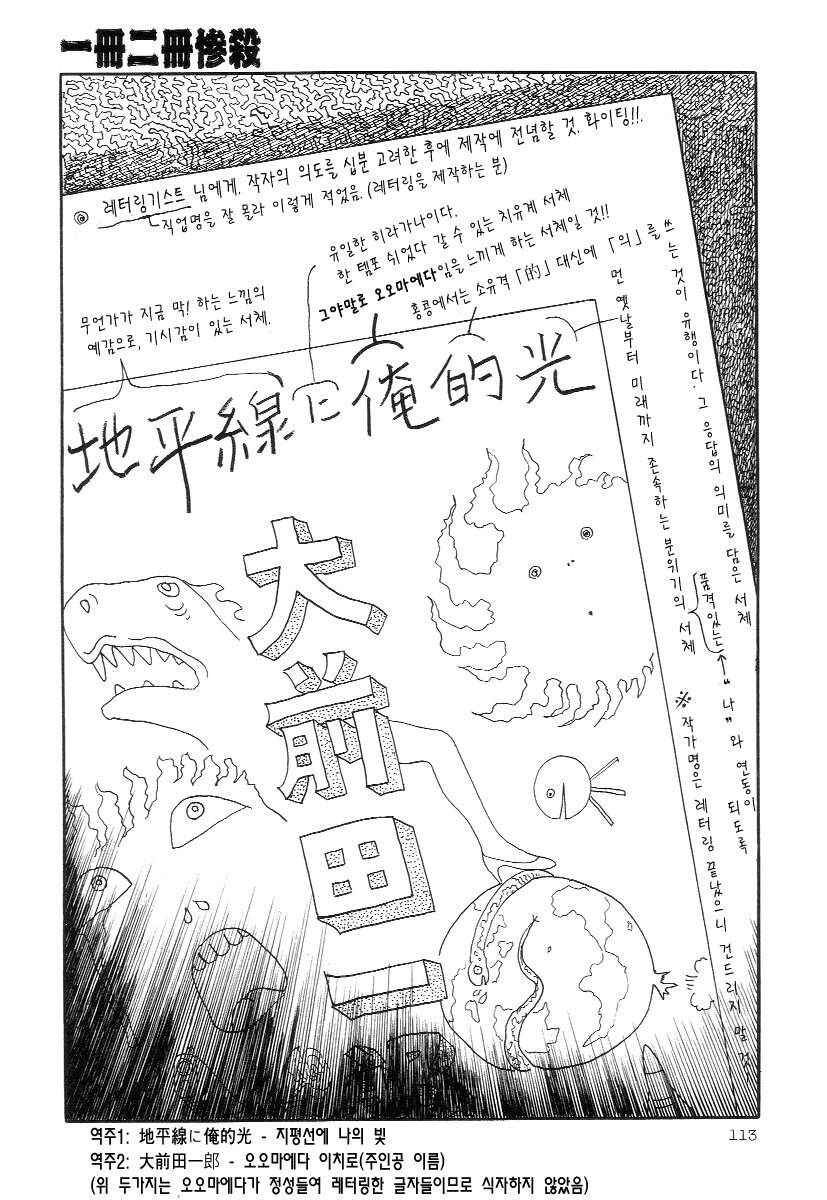 一冊二冊惨殺
◎ 레터링기스트 님에게. 작자의 의도를 십분 고려한 후에 제작에 전념할 것. 화이팅!!.
직업명을 잘 몰라 이렇게 적었음. (레터링을 제작하는 분)
무언가가 지금 막! 하는 느낌의
예감으로, 기시감이 있는 서체.
유일한 히라가나이다.
한 템포 쉬었다 갈 수 있는 치유계 서체
그야말로 오오마에다임을 느끼게 하는 서체일 것!!
홍콩에서는 소유격「的」대신에 「의」를 쓰는 것이 유행이다. 그 응답의 의미를 담은 서체
먼 옛날부터 미래까지 존속하는 분위기의 서체
품격있는
→"나"와 연동이 되도록
地平線に俺的光
大前田一
※ 작가명은 레터링 끝났으니 건드리지 말 것
역주1: 地平線に俺的光 - 지평선에 나의 빛
113
역주2: 大前田一郎 - 오오마에다 이치로(주인공 이름)
(위 두가지는 오오마에다가 정성들여 레터링한 글자들이므로 식자하지 않았음)